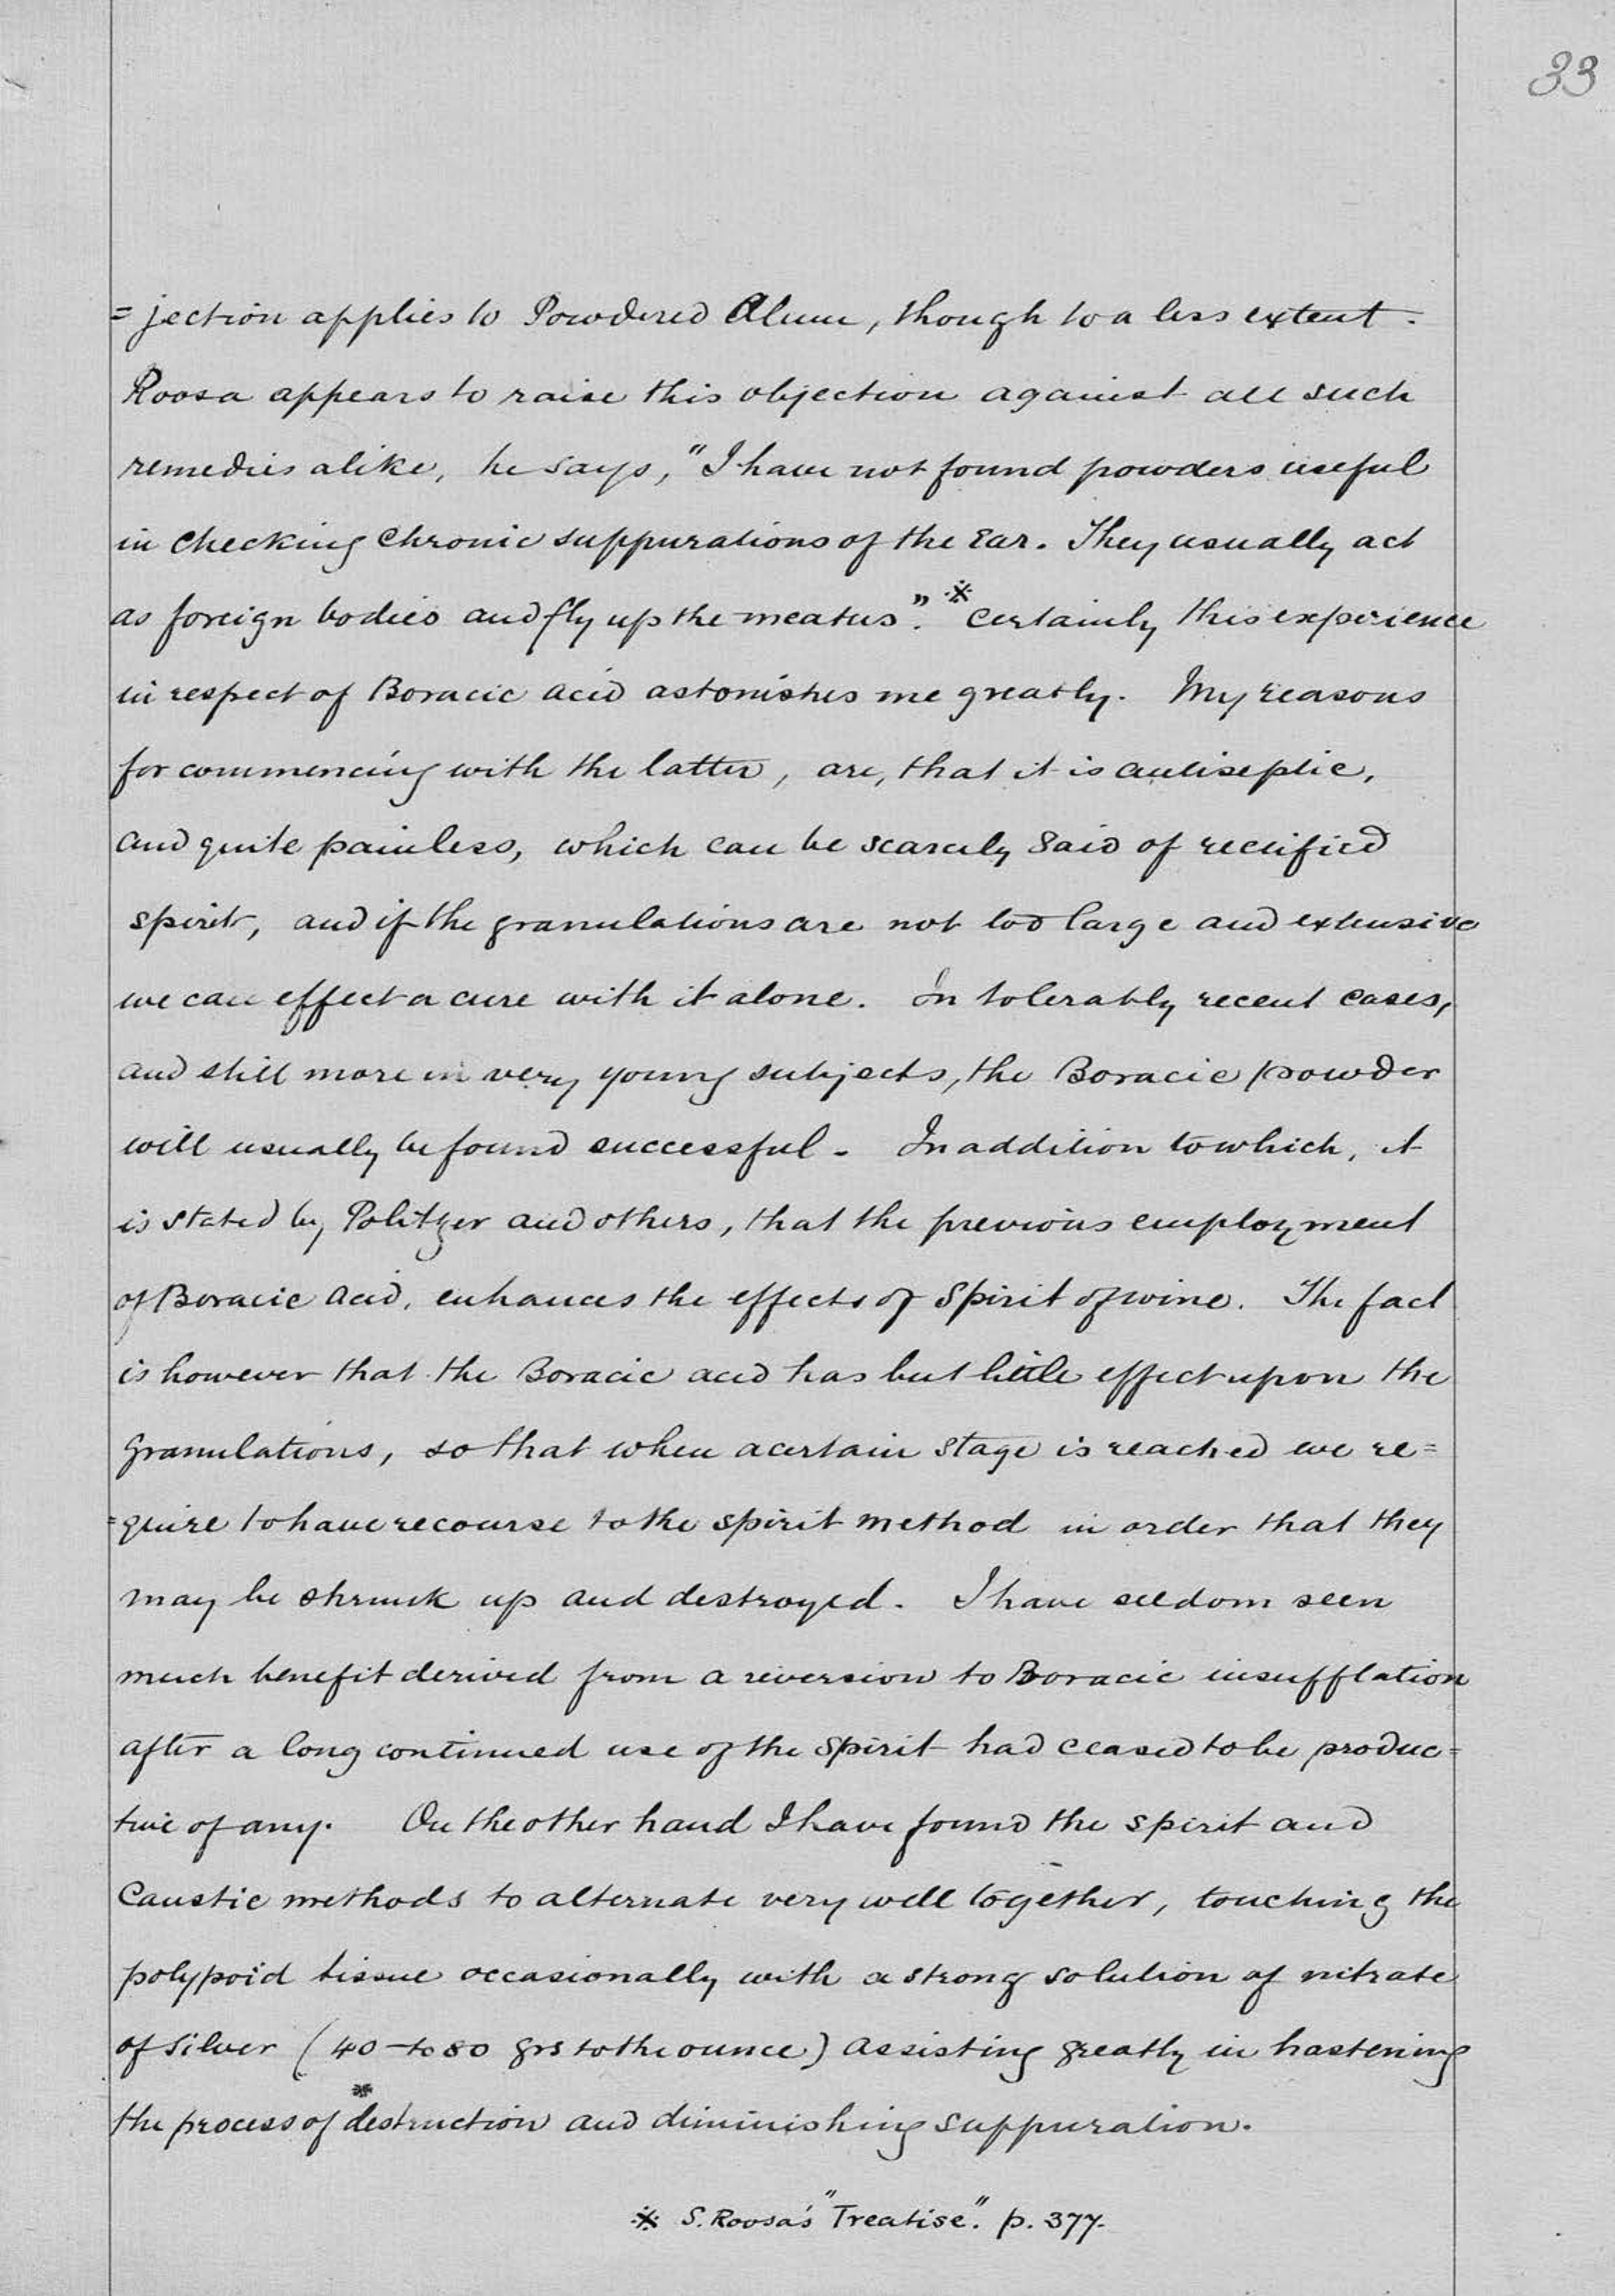 33
= jection applies to Powdered Alum, though to a less extent.
Roosa appears to raise this objection against all such
remedies alike, he says, "I have not found powders useful
in checking Chronic suppurations of the Ear. They usually act
as foreign bodies and fly up the meatus". ※ Certainly this experience
in respect of Boracic acid astonishes me greatly. My reasons
for commencing with the latter, are, that it is antiseptic,
and quite painless, which can be scarcely said of rectified
spirit, and if the granulations are not too large and extensive
we can effect a cure with it alone. In tolerably recent cases,
and still more in very young subjects, the Boracic powder
will usually be found successful. In addition to which, it
is stated by Politzer and others, that the previous employment
of Boracic acid, enhances the effects of Spirit of wine. The fact
is however that the Boracic acid has but little effect upon the
granulations, so that when a certain stage is reached we re=
=quire to have recourse to the spirit method in order that they
may be shrunk up and destroyed. I have seldom seen
much benefit derived from a reversion to Boracic insufflation
after a long continued use of the Spirit had ceased to be produc=
tive of any. On the other hand I have found the spirit and
Caustic methods to alternate very well together, touching the
polypoid tissue occasionally with a strong solution of nitrate
of silver (40 to 80 grs to the ounce) assisting greatly in hastening
the process of * destruction and diminishing suppuration.
※ S. Roosa's "Treatise". p. 377.